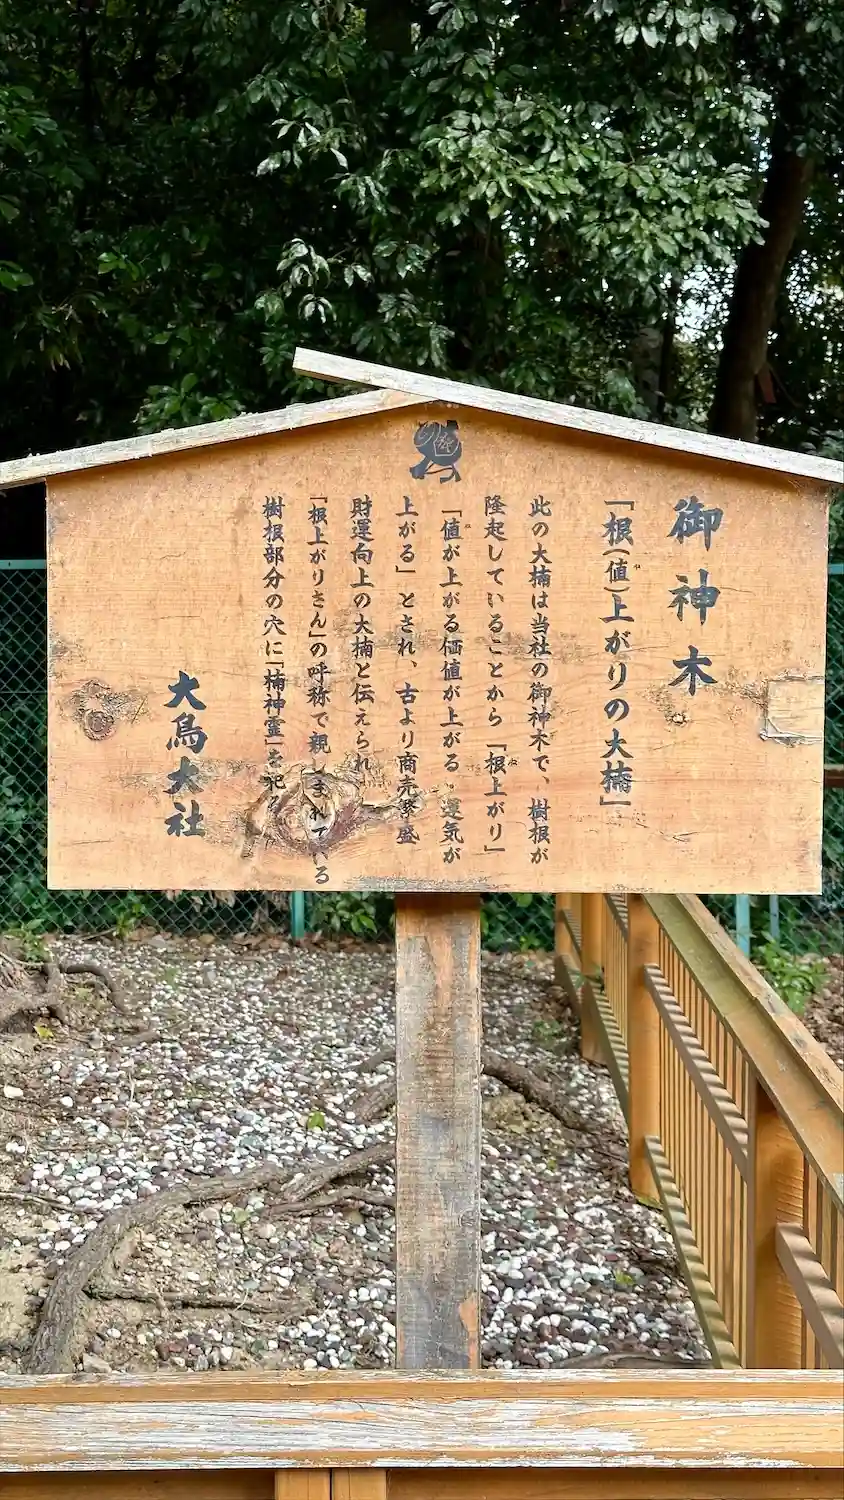 御神木
「根(値)上がりの大楠」
此の大楠は当社の御神木で、樹根が
隆起していることから「根上がり」
「値が上がる価値が上がる。運気が
上がる」とされ、古より商売繁盛
財運向上の大楠と伝えられ
「根上がりさん」の呼称で親しまれている
樹根部分の穴に「楠神霊」を祀る
大鳥大社